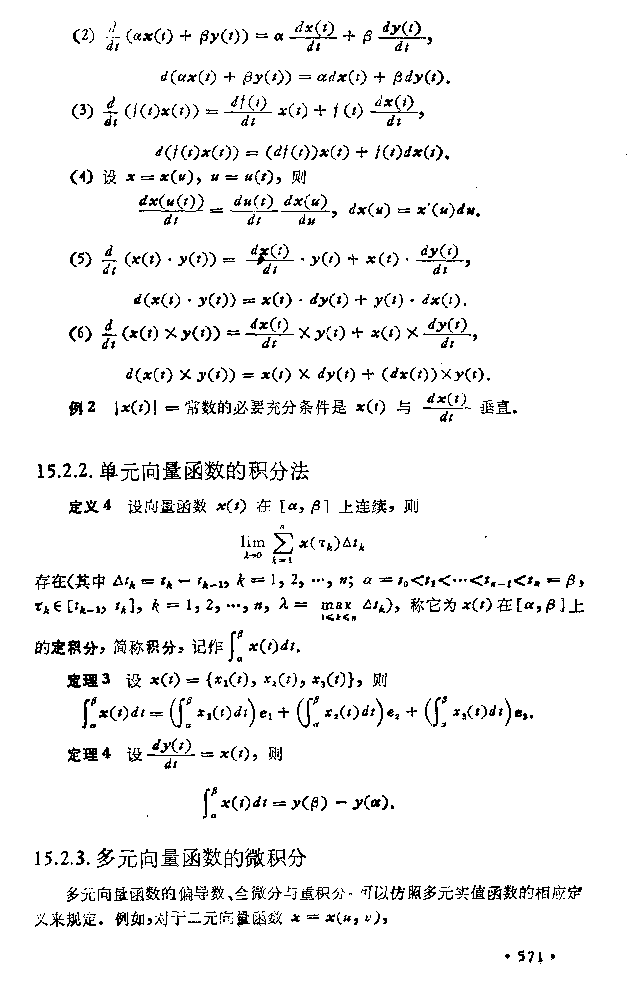 (2) d/dt (αx(t) + βy(t)) = α dx(t)/dt + β dy(t)/dt,
d(αx(t) + βy(t)) = αdx(t) + βdy(t).
(3) d/dt (f(t)x(t)) = df(t)/dt x(t) + f(t) dx(t)/dt,
d(f(t)x(t)) = (df(t))x(t) + f(t)dx(t).
(4) 设 x = x(u), u = u(t), 则
dx(u(t))/dt = du(t)/dt dx(u)/du, dx(u) = x'(u)du.
(5) d/dt (x(t) · y(t)) = dx(t)/dt · y(t) + x(t) · dy(t)/dt,
d(x(t) · y(t)) = x(t) · dy(t) + y(t) · dx(t).
(6) d/dt (x(t) × y(t)) = dx(t)/dt × y(t) + x(t) × dy(t)/dt,
d(x(t) × y(t)) = x(t) × dy(t) + (dx(t))×y(t).
例2 |x(t)| = 常数的必要充分条件是 x(t) 与 dx(t)/dt 垂直.
15.2.2. 单元向量函数的积分法
定义4 设向量函数 x(t) 在 [α, β] 上连续, 则
lim_{λ→0} ∑_{k=1}^{n} x(τ_k)Δt_k
存在(其中 Δt_k = t_k − t_{k-1}, k = 1, 2, ···, n; α = t_0<t_1<···<t_{n-1}<t_n = β,
τ_k∈[t_{k-1}, t_k], k = 1, 2, ···, n, λ = max_{1≤k≤n} Δt_k), 称它为 x(t) 在 [α, β] 上
的定积分, 简称积分, 记作 ∫_α^β x(t)dt.
定理3 设 x(t) = {x_1(t), x_2(t), x_3(t)}, 则
∫_α^β x(t)dt = (∫_α^β x_1(t)dt) e_1 + (∫_α^β x_2(t)dt) e_2 + (∫_α^β x_3(t)dt) e_3.
定理4 设 dy(t)/dt = x(t), 则
∫_α^β x(t)dt = y(β) − y(α).
15.2.3. 多元向量函数的微积分
多元向量函数的偏导数、全微分与重积分. 可以仿照多元实值函数的相应定
义来规定. 例如, 对于二元向量函数 x = x(u, v),
· 571 ·